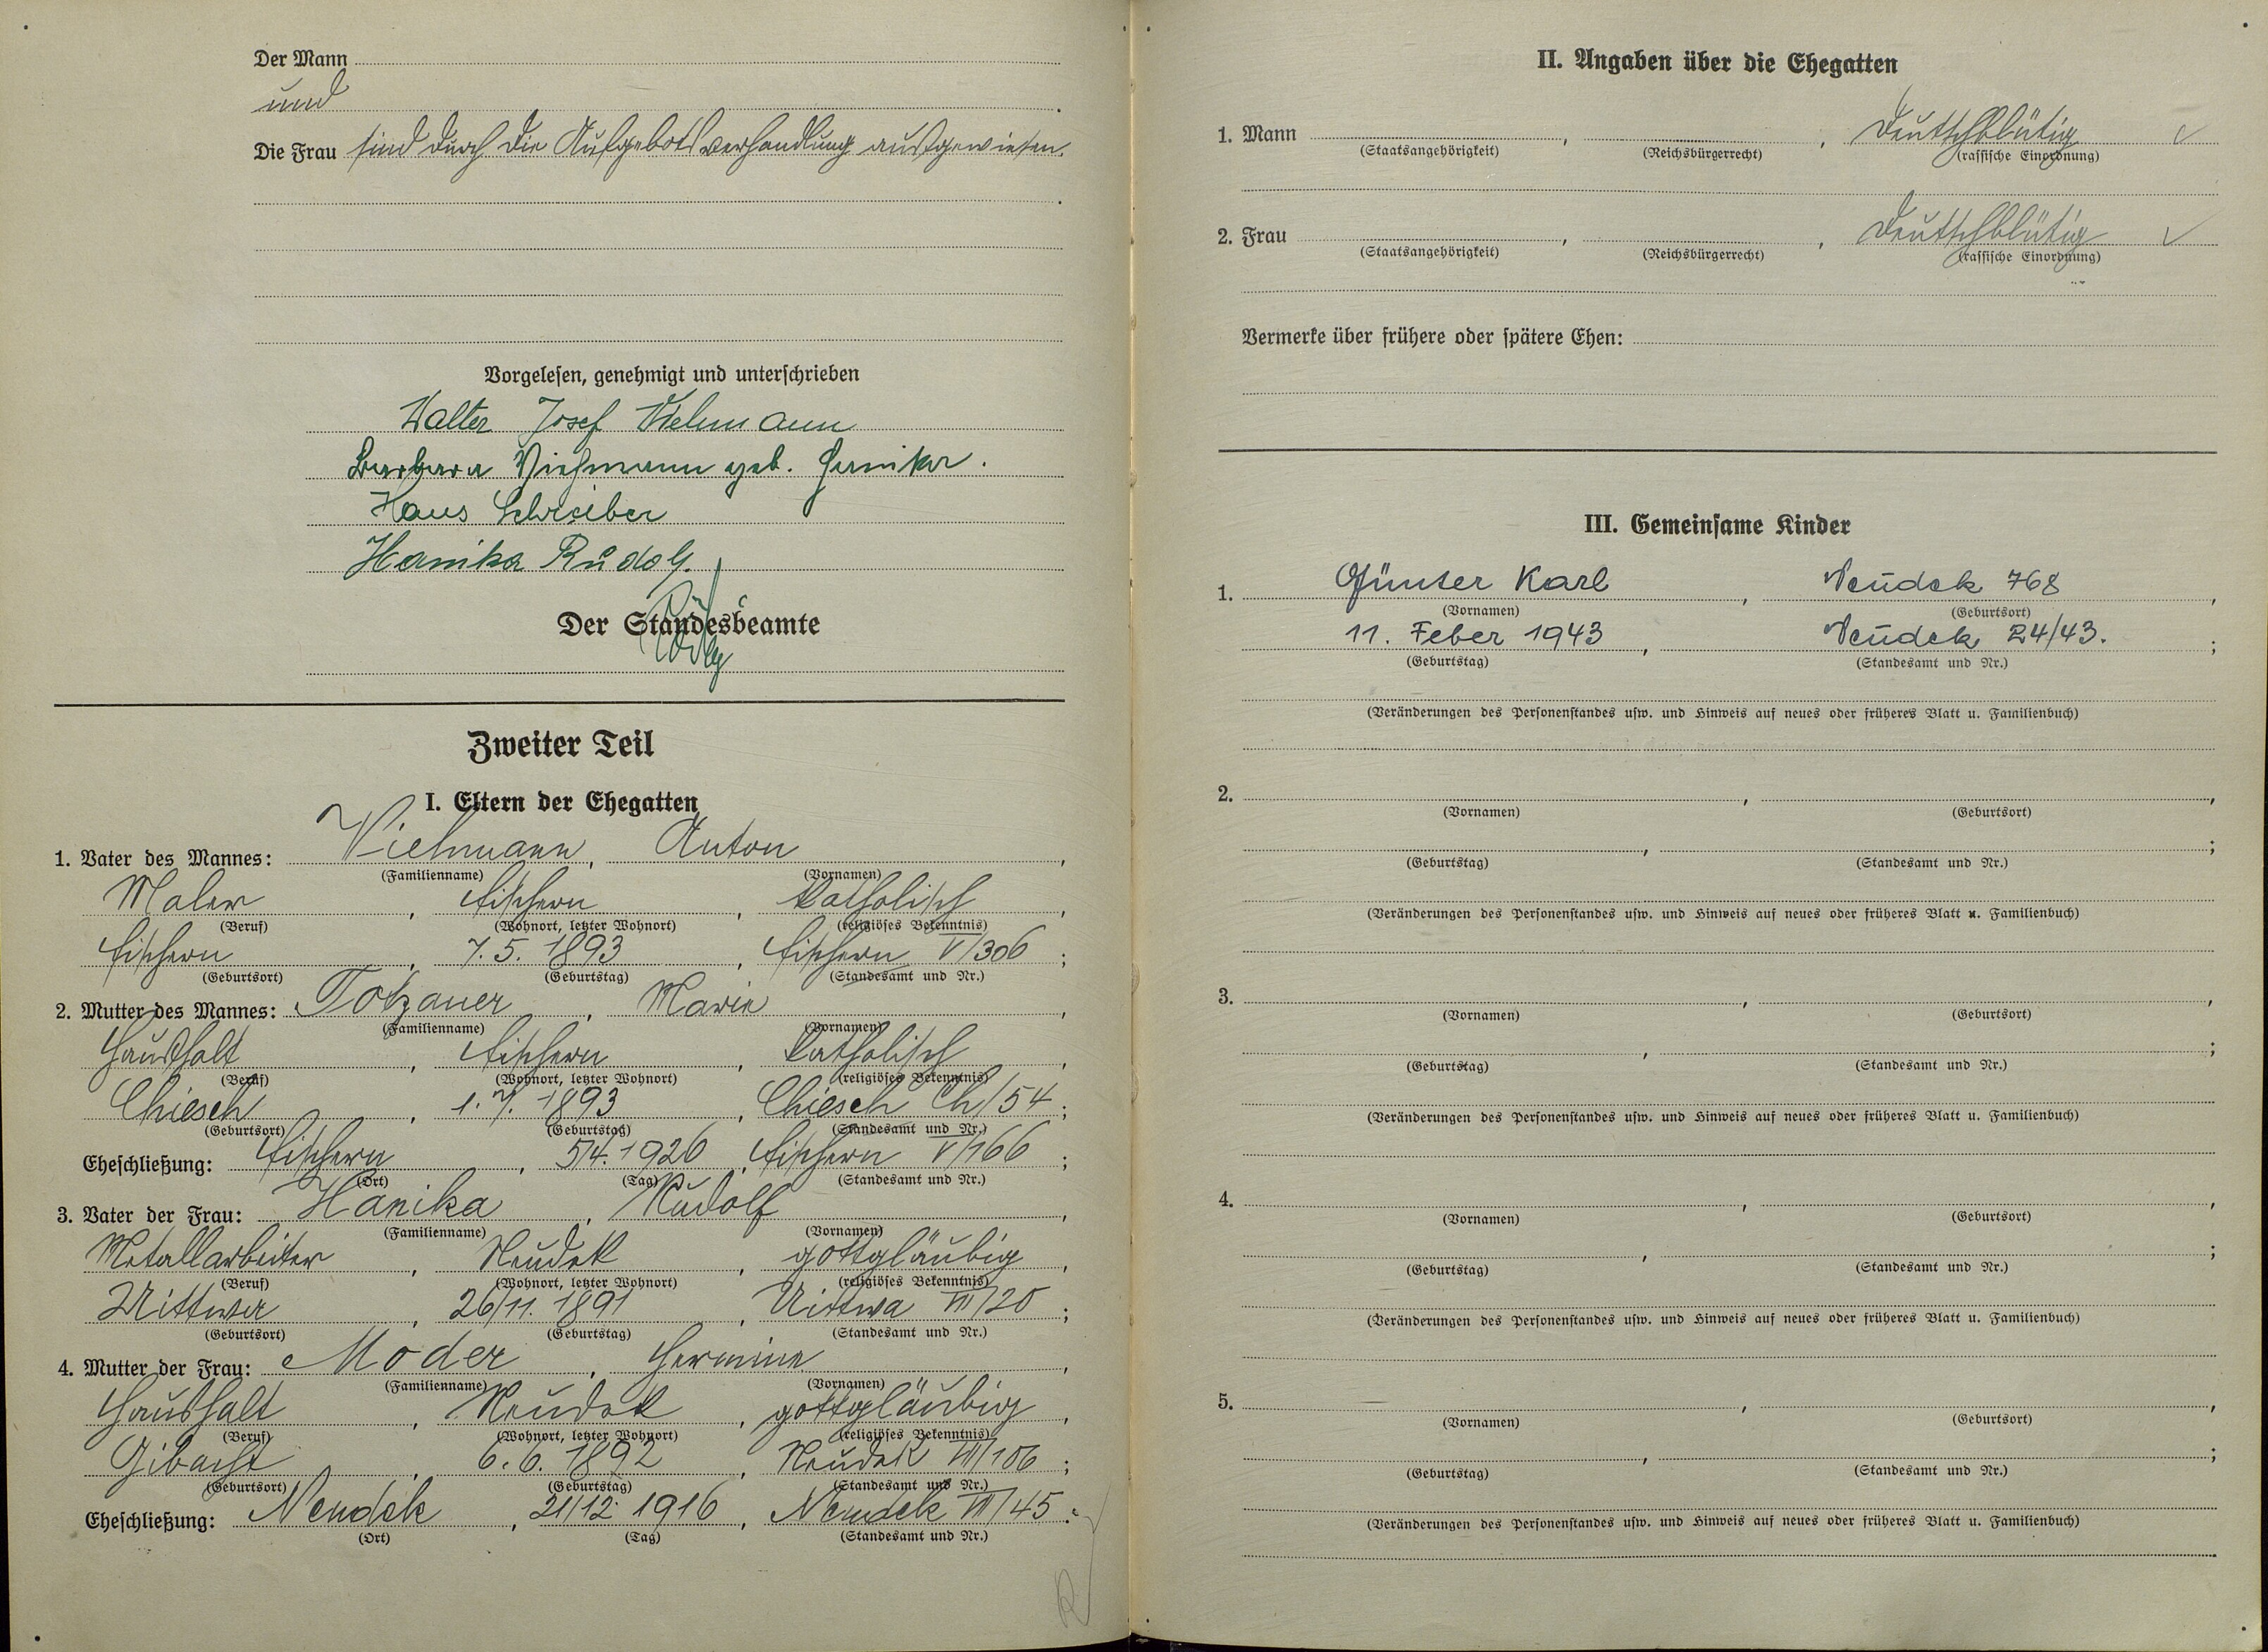 Der Mann
und
Die Frau sind durch die Aufgebotsverhandlung ausgewiesen.
Vorgelesen, genehmigt und unterschrieben
Walter Josef Viehmann
Barbara Viehmann geb. Hanika.
Hans Schreiber
Hanika Rudolf.
Der Standesbeamte
Zweiter Teil
I. Eltern der Ehegatten
1. Vater des Mannes: Viehmann, Anton,
(Familienname) (Vornamen)
Maler, Fischern, katholisch,
(Beruf) (Wohnort, letzter Wohnort) (religiöses Bekenntnis)
Fischern, 7.5. 1893, Fischern V/306;
(Geburtsort) (Geburtstag) (Standesamt und Nr.)
2. Mutter des Mannes: Totzauer, Marie,
(Familienname) (Vornamen)
Haushalt, Fischern, katholisch,
(Beruf) (Wohnort, letzter Wohnort) (religiöses Bekenntnis)
Chiesch, 1.7. 1893, Chiesch Ch/54;
(Geburtsort) (Geburtstag) (Standesamt und Nr.)
Eheschließung: Fischern, 5/4. 1926, Fischern V/166;
(Ort) (Tag) (Standesamt und Nr.)
3. Vater der Frau: Hanika, Rudolf,
(Familienname) (Vornamen)
Metallarbeiter, Neudek, gottgläubig,
(Beruf) (Wohnort, letzter Wohnort) (religiöses Bekenntnis)
26/11. 1891, VII/20;
(Geburtsort) (Geburtstag) (Standesamt und Nr.)
4. Mutter der Frau: Moder, Hermine,
(Familienname) (Vornamen)
Haushalt, Neudek, gottgläubig,
(Beruf) (Wohnort, letzter Wohnort) (religiöses Bekenntnis)
Gibacht, 6.6. 1892, Neudek VII/106;
(Geburtsort) (Geburtstag) (Standesamt und Nr.)
Eheschließung: Neudek, 21/12. 1916, Neudek VII/45.
(Ort) (Tag) (Standesamt und Nr.)
II. Angaben über die Ehegatten
1. Mann , , Deutschblütig ✓
(Staatsangehörigkeit) (Reichsbürgerrecht) (rassische Einordnung)
2. Frau , , Deutschblütig ✓
(Staatsangehörigkeit) (Reichsbürgerrecht) (rassische Einordnung)
Vermerke über frühere oder spätere Ehen:
III. Gemeinsame Kinder
1. Günter Karl, Neudek 768,
(Vornamen) (Geburtsort)
11. Feber 1943, Neudek 24/43.;
(Geburtstag) (Standesamt und Nr.)
(Veränderungen des Personenstandes usw. und Hinweis auf neues oder früheres Blatt u. Familienbuch)
2. , ,
(Vornamen) (Geburtsort)
, ;
(Geburtstag) (Standesamt und Nr.)
(Veränderungen des Personenstandes usw. und Hinweis auf neues oder früheres Blatt u. Familienbuch)
3. , ,
(Vornamen) (Geburtsort)
, ;
(Geburtstag) (Standesamt und Nr.)
(Veränderungen des Personenstandes usw. und Hinweis auf neues oder früheres Blatt u. Familienbuch)
4. , ,
(Vornamen) (Geburtsort)
, ;
(Geburtstag) (Standesamt und Nr.)
(Veränderungen des Personenstandes usw. und Hinweis auf neues oder früheres Blatt u. Familienbuch)
5. , ,
(Vornamen) (Geburtsort)
, ;
(Geburtstag) (Standesamt und Nr.)
(Veränderungen des Personenstandes usw. und Hinweis auf neues oder früheres Blatt u. Familienbuch)